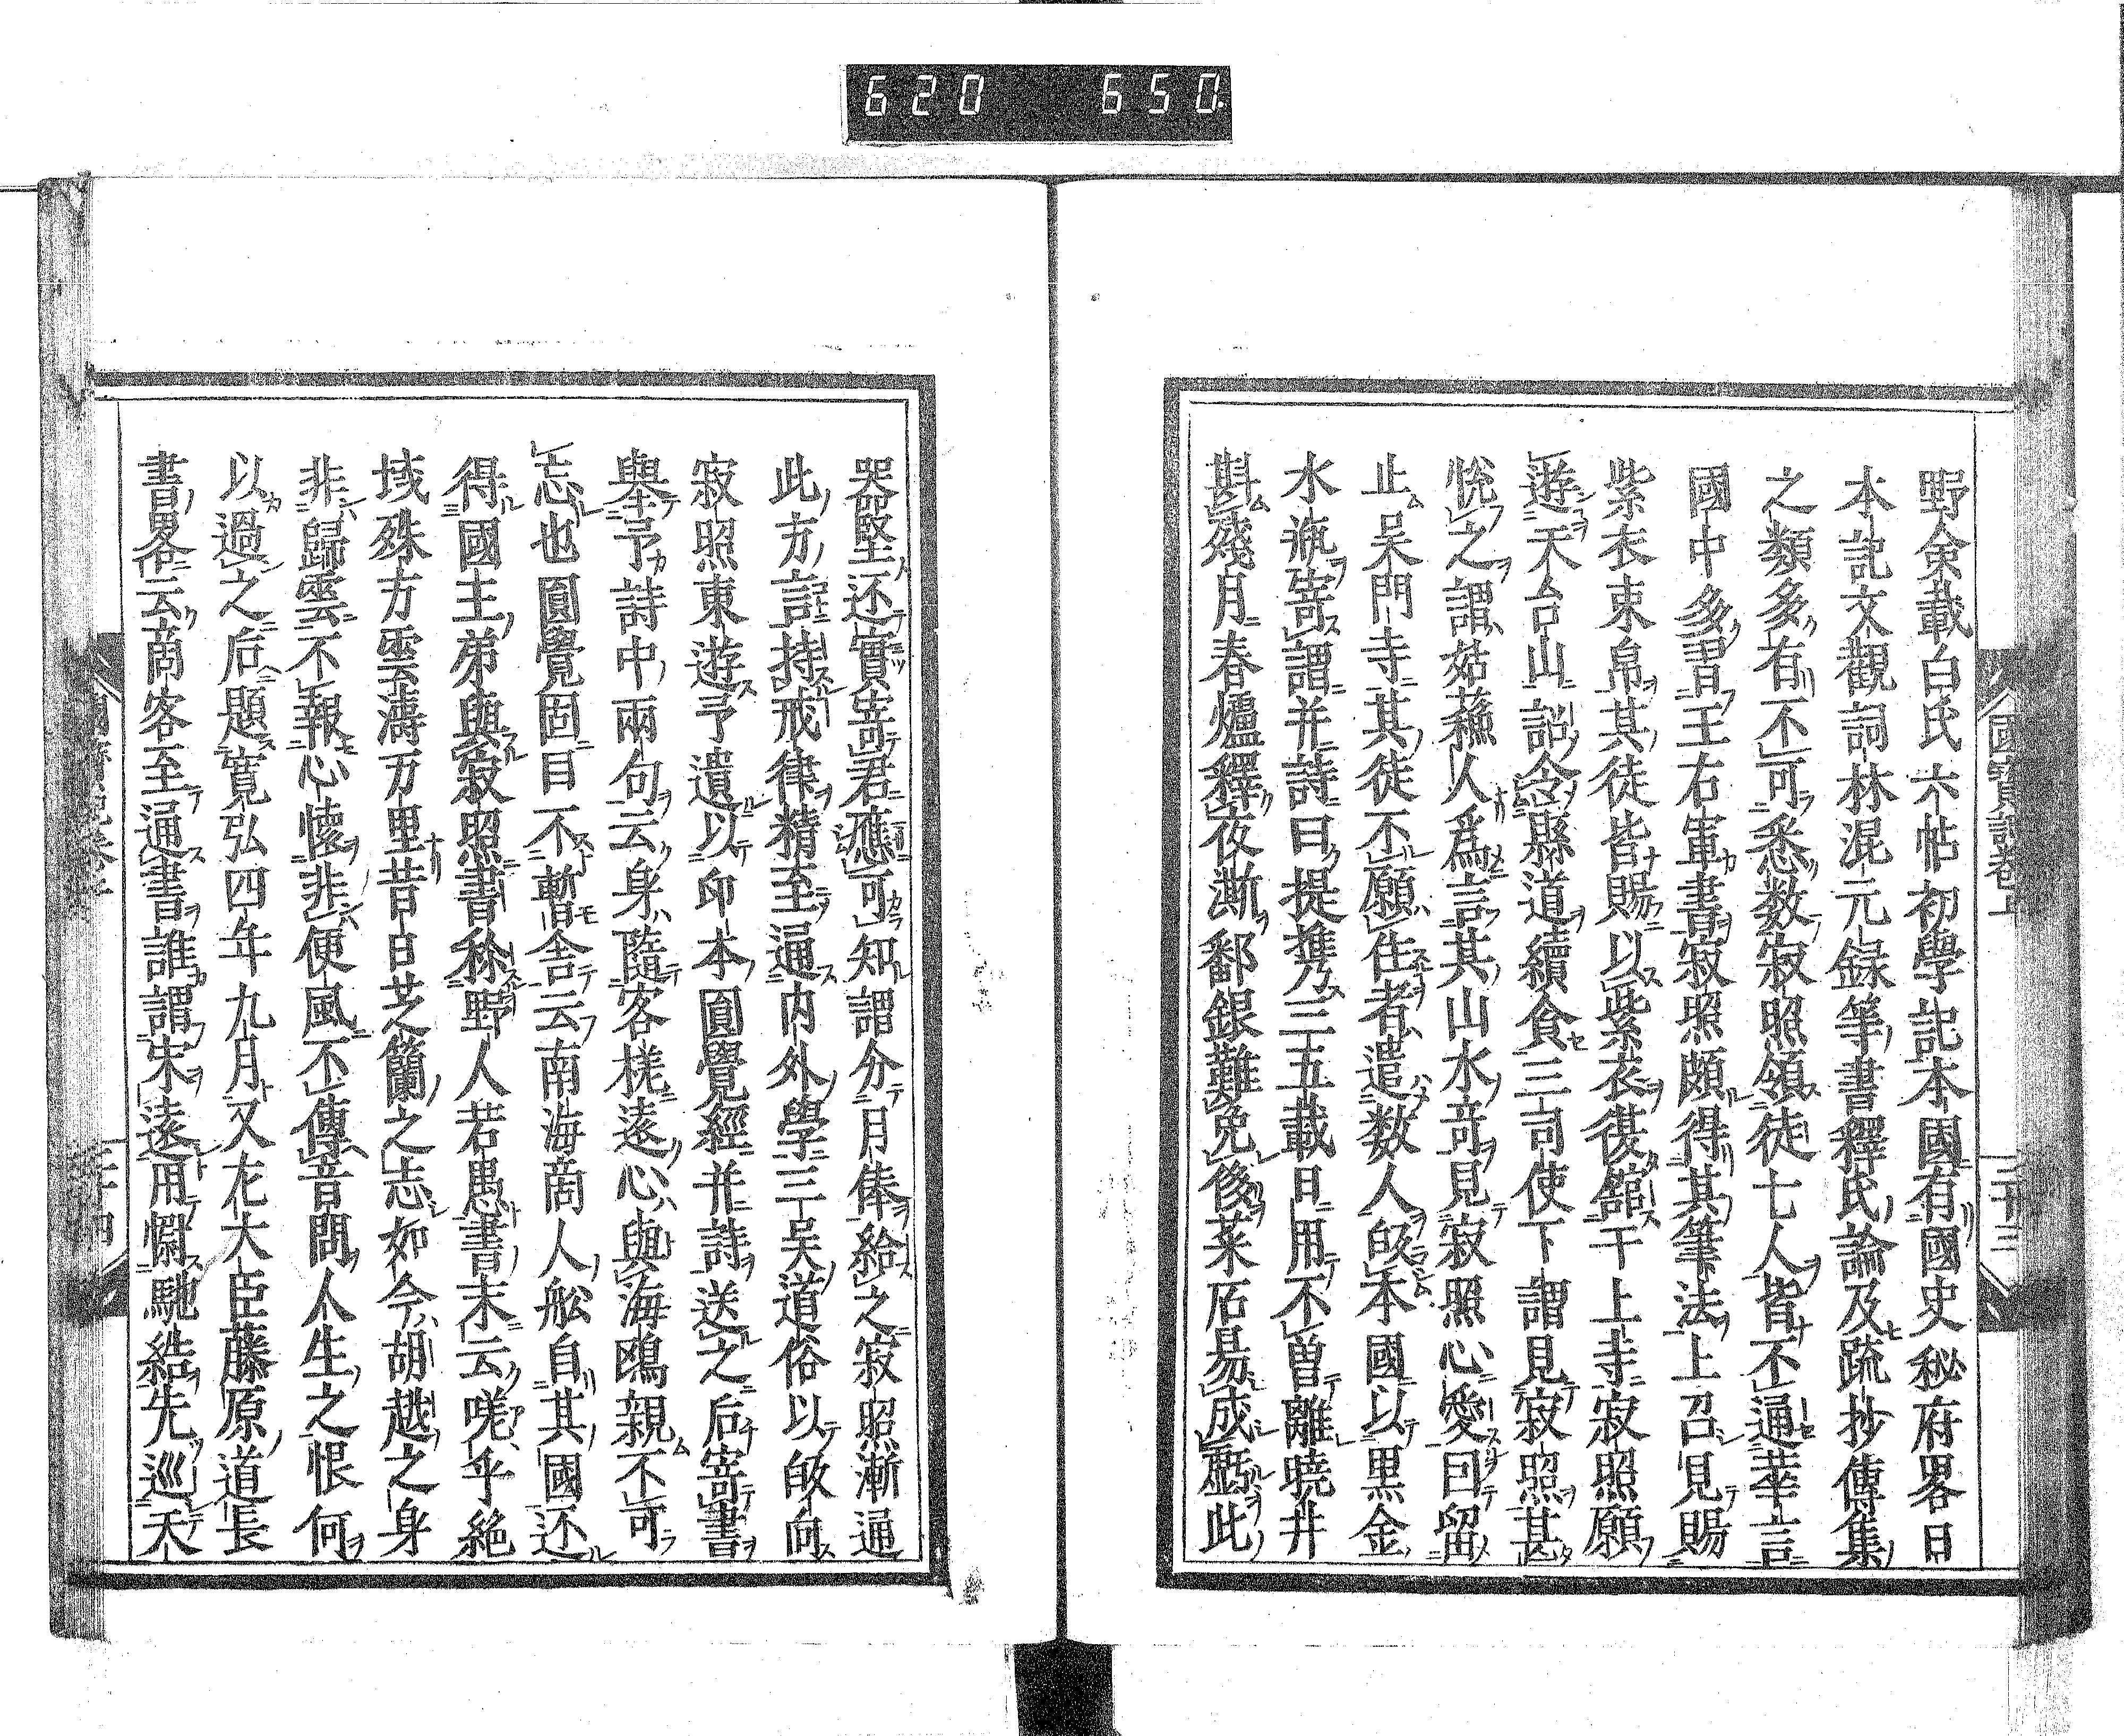 620 650
國寶記卷上
二十三
野僉載白氏六帖初學記本國有國史秘府畧日
本記文觀詞林混元録等書釋氏論及疏抄傳集
之類多有不可悉数寂照領徒七人皆不通華言
國中多習王右軍書寂照頗得其筆法上召見賜
紫衣束帛其徒皆賜以紫衣復舘于上寺寂照願
遊天台山詔令縣道續食三司使丁謂見寂照甚
悦之謂姑蘓人爲言其山水奇見寂照心愛曰留
止吴門寺其徒不願住者遣数人皈本國以黒金
水瓶寄謂并詩曰提携三五載日用不曽離曉井
斟殘月春爐釋夜澌鄱銀難免侈莱石易成虧此
器堅还實寄君應可知謂分月俸給之寂照漸通
此方言持戒律精至通内外學三吴道俗以皈向
寂照東遊予遺以印本圓覺經并詩送之后寄書
舉予詩中兩句云身隨客槎遠心與海鷗親不可
忘也圓覺固目不暫舎云南海商人舩自其國还
得國主弟與寂照書称野人若愚書末云嗟乎絶
域殊方雲濤万里昔日芝蘭之志如今胡越之身
非歸雲不報心懷非便風不傳音問人生之恨何
以過之后題寛弘四年九月又左大臣藤原道長
書畧云商客至通書誰謂宋遠用慰馳結先巡天